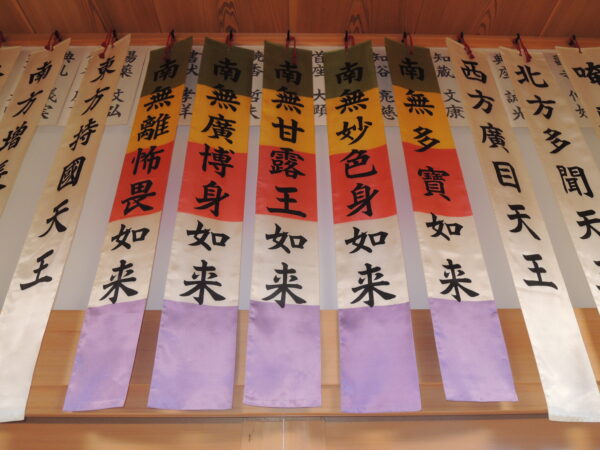 北方多聞天王
西方廣目天王
知蔵 文康
南無多寶如来
南無妙色身如来
首座
南無甘露王如来
南無廣博身如来
南無離怖畏如来
湯薬 文弘
東方持國天王
南方増長